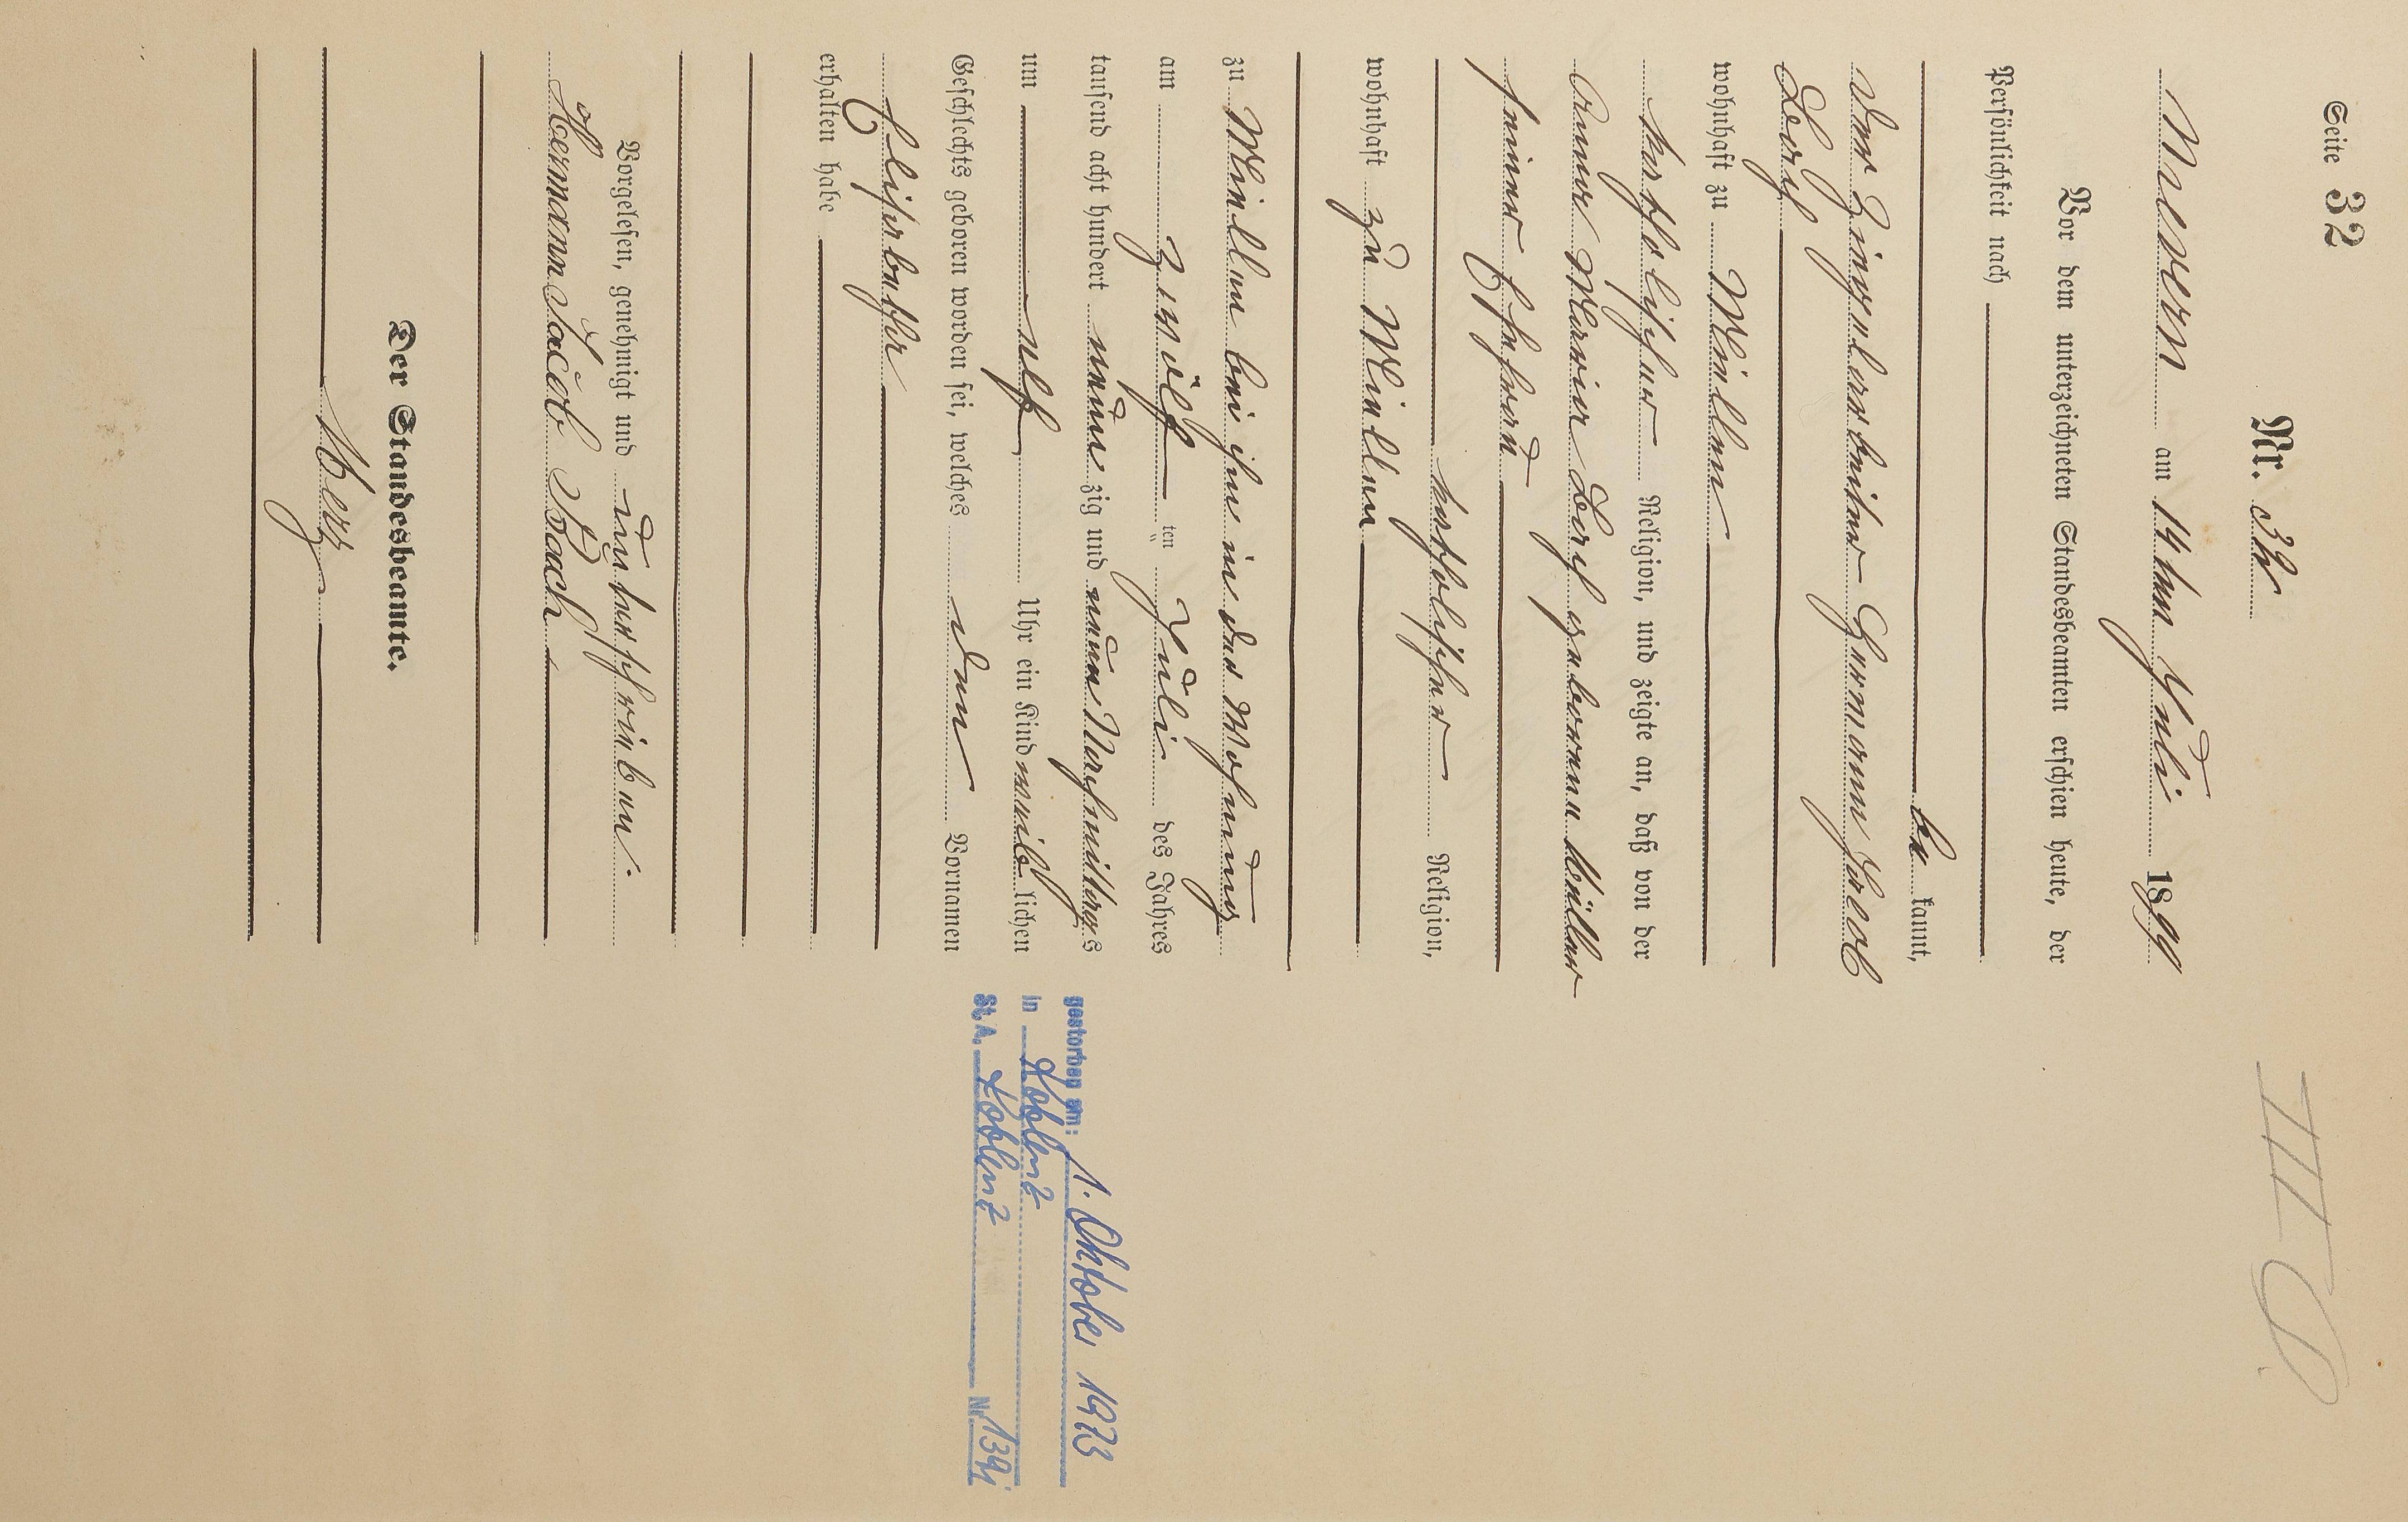 Seite 32
Nr. 32
Mayen am 14ten Juli 1899
Vor dem unterzeichneten Standesbeamten erschien heute, der
Persönlichkeit nach
be kannt,
der Ziegelarbeiter Hermann Jacob
Bach
wohnhaft zu
katholischer Religion, und zeigte an, daß von der
Anna Maria Bach geborenen Müller
seiner Ehefrau
katholischer Religion,
wohnhaft zu
zu bei ihm in der Wohnung
am zwölf ten Juli des Jahres
tausend acht hundert neun zig und neun Nachmittags
um elf Uhr ein Kind weib lichen
Geschlechts geboren worden sei, welches den Vornamen
Elisabetha
erhalten habe
Vorgelesen, genehmigt und unterschrieben.
Hermann Jacob Bach
Der Standesbeamte.
gestorben am: 1. Oktober 1973
in Koblenz
St.A. Koblenz Nr.